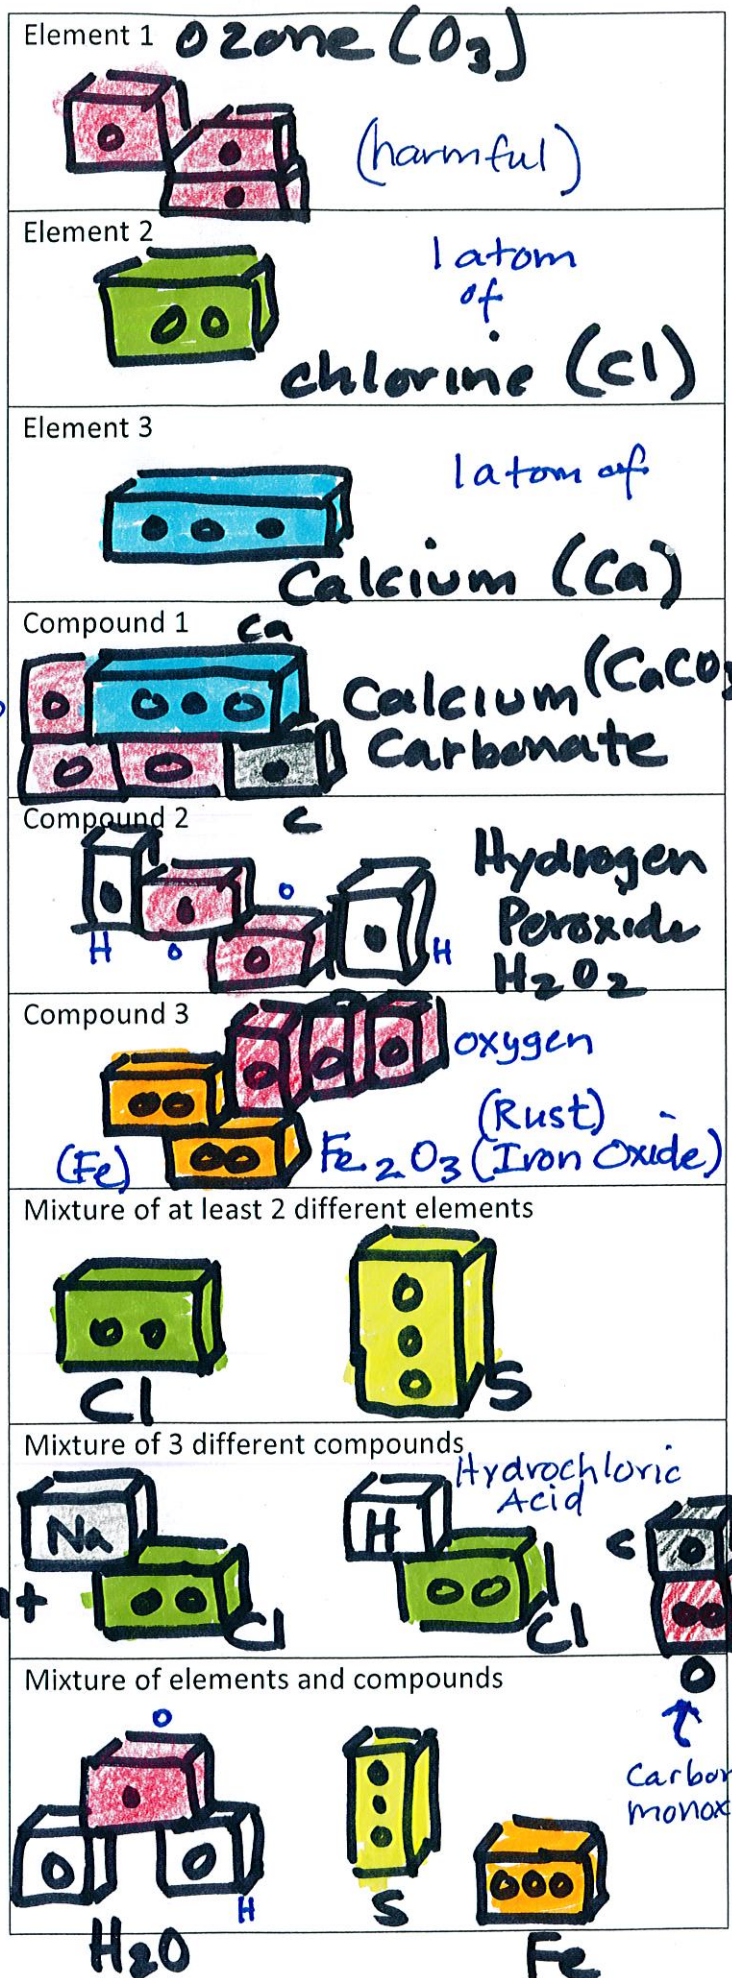 Element 1 Ozone (O3)
(harmful)
Element 2
1 atom
of
chlorine (Cl)
Element 3
1 atom of
Calcium (Ca)
Compound 1 Ca
Calcium (CaCO3
Carbonate
Compound 2 C
Hydrogen
Peroxide
H2O2
O
H O H
Compound 3
oxygen
(Rust)
(Fe) Fe2O3 (Iron Oxide)
Mixture of at least 2 different elements
Cl S
Mixture of 3 different compounds
Hydrochloric
Acid
Na H C
Cl Cl
O
Mixture of elements and compounds
Carbon
monox
O
H
S
H2O Fe